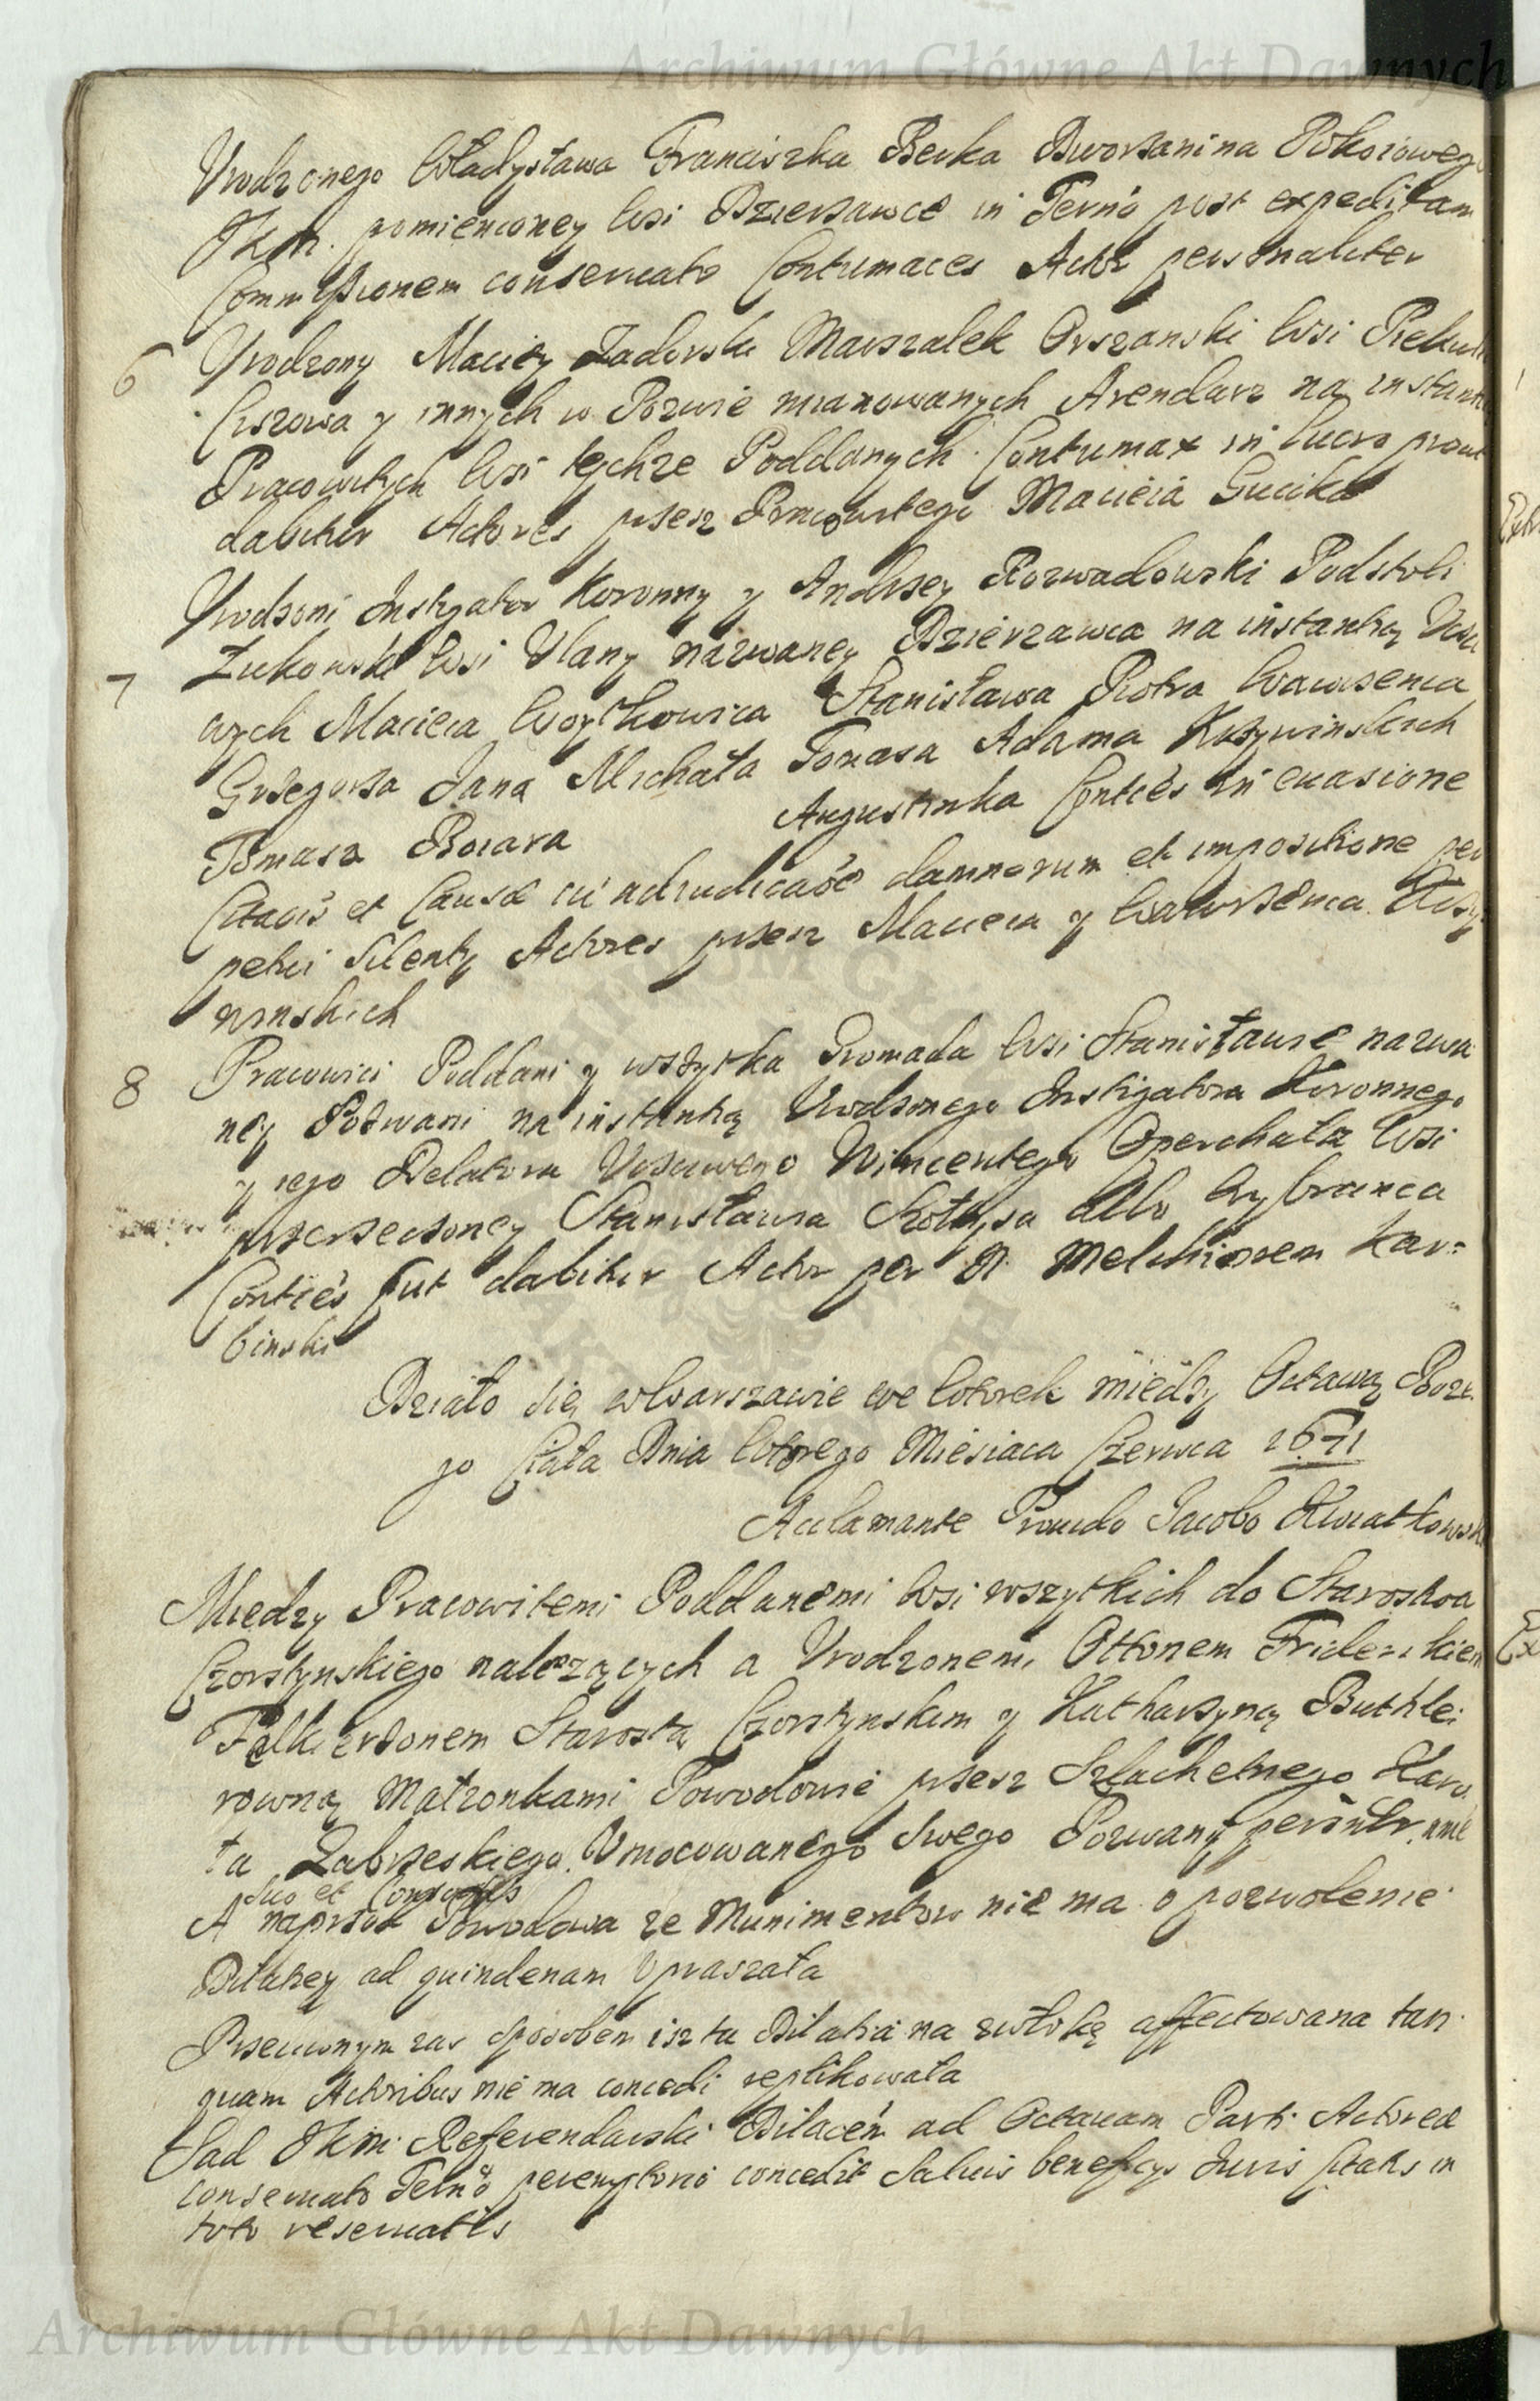 Archiwum Główne Akt Dawnych
Urodzonego Władysława Franciszka Becka Dworzanina Pokoiowego
JKM. pomienioney wsi Dzierzawce in Termo post expeditam
Commissionem conservato Contumaces Actor personaliter
6 Urodzony Maciey Zadorski Marszałek Orszanski wsi
y innych w Pozwie mianowanych Arendarz na instantią
Pracowitych wsi tychze Poddanych Contumax in lucro prout
dabitur Actores przez Pracowitego Macieia Gucika
Urodzeni Instigator Koronny y Andrzey Rozwadowski Podstoli
7 Łukowski wsi Ulany nazwaney Dzierzawca na instantią Ucz
wych Macieia Woytkowica Stanisława Piotra Wawrzenca
Grzegorza Jana Michała Tomasa Adama
Tomasa Augustinka Conties in euasione
Citaōis et Causæ cū adiudicaōe damnorum et impositione per
petui Silenty Actores przez Macieia y Wawrzenca
winskich
8 Pracowici Poddani y wszytka Gromada wsi Stanisławie nazwa
ney Pozwani na instantią Urodzonego Instigatora Koronnego
y iego Delatora Uczciwego Wincentego Operchała wsi
przerzeczoney Stanisława albo Wybranca
Conties put dabitur Actor per N. Melchiorem Kar=
binski
Działo się w Warszawie we Wtorek między Octawą Boze
go Ciała Dnia Wtorego Miesiaca Czerwca 1671
Acclamante Provido Jacobo Kwiatkowski
Miedzy Pracowitemi Poddanemi wsi wszytkich do Starostwa
Czorstynskiego nalezących a Urodzonemi Ottonem Friderikiem
Felkierzonem Starostą Czorstynskim y Katharzyną Buthle
rowną Małzonkami Powodowie przez Szlachetnego Karo
la Zabrzeskiego Umocowanego Swego Pozwany
suo et Consortis
A naprzod Powodowa ze Munimentow nie ma o pozwolenie
Dilatiey ad quindenam Upraszała
Przeciwnym zas sposobem isz ta Dilatia na zwłokę affectowana tan
quam Actoribus nie ma concedi replikowała
Sad JKM Referendarski Dilaōem ad Octavam Parti Actoreæ
conservato Termo peremptorio concedit Salvis beneficys Iuris Citatis in
toto reservatis
Archiwum Główne Akt Dawnych